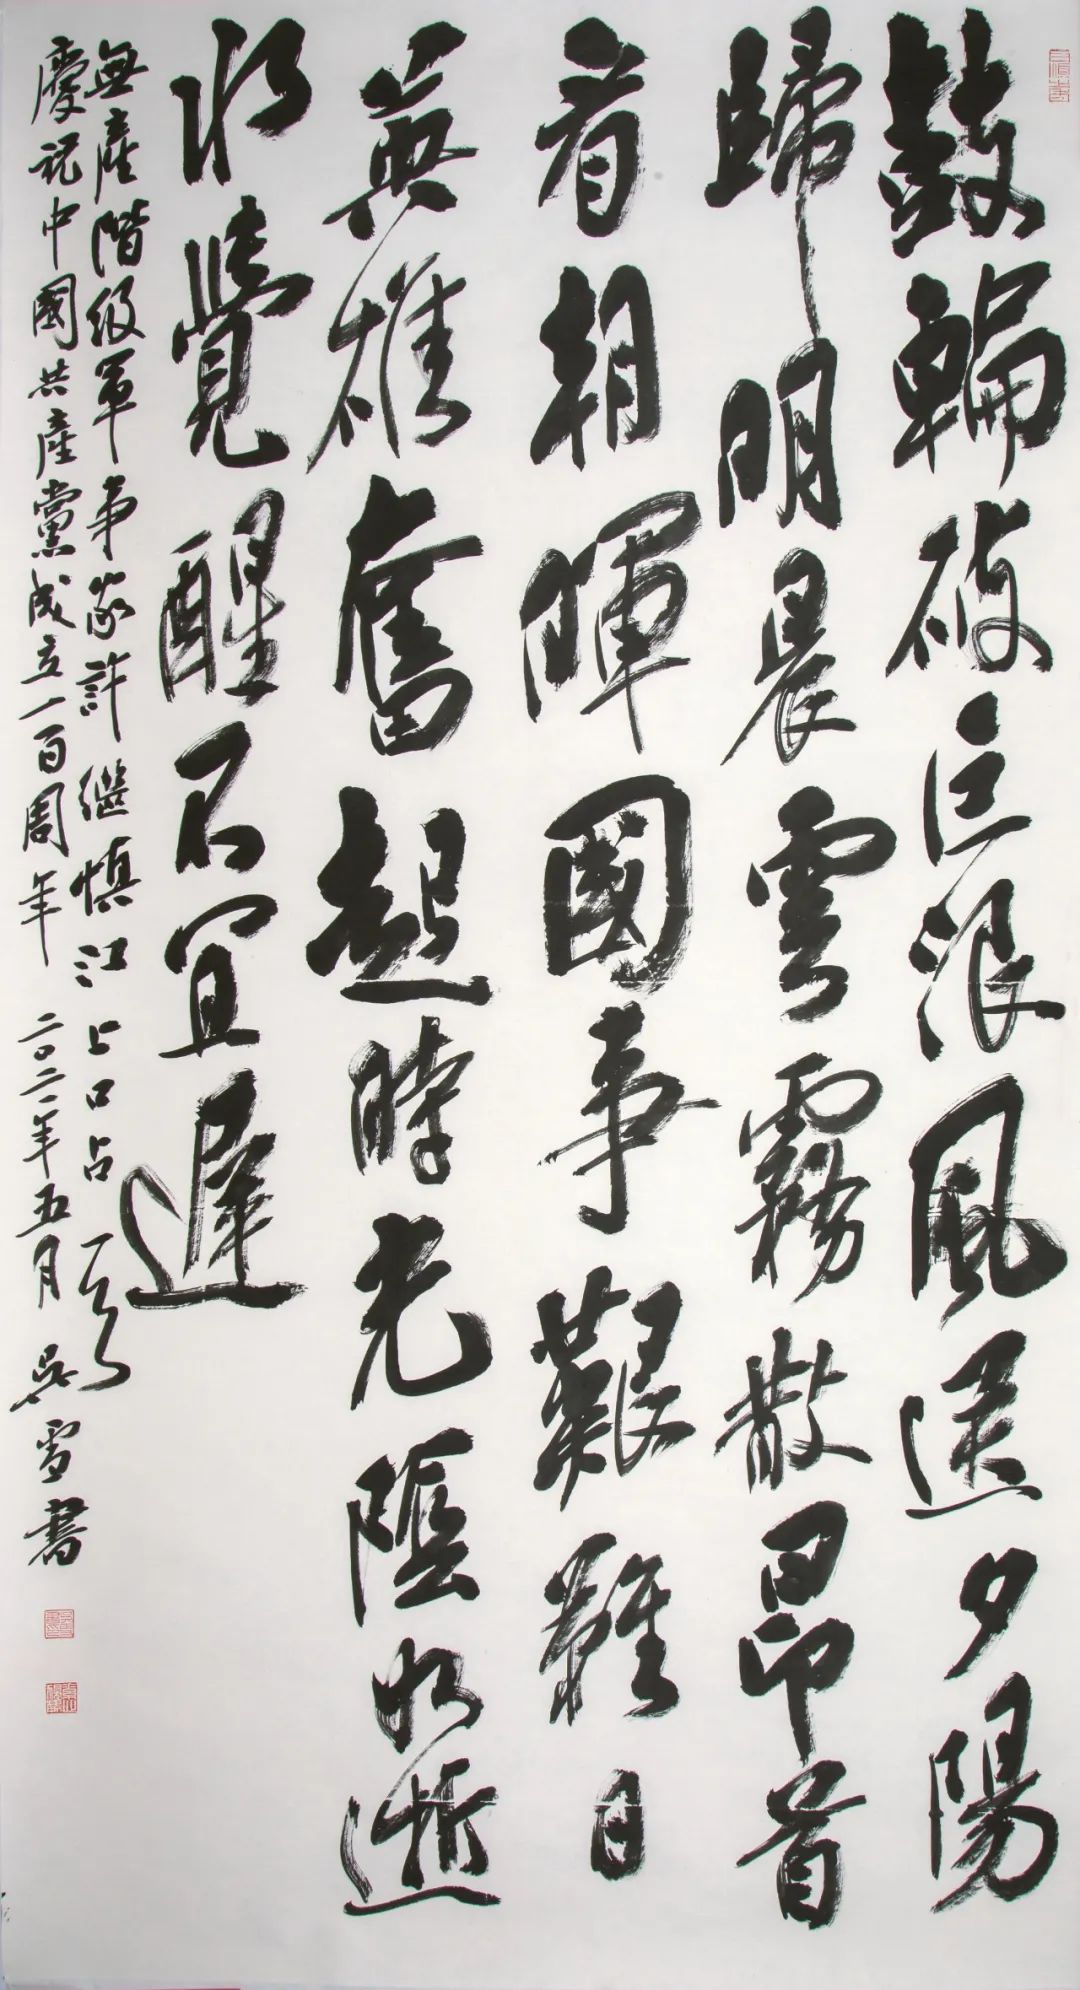 鼓輪破巨浪風送夕陽
歸明晨雲霧散昂首
看朝暉國事艱難日
英雄奮起時光陰如逝
水覺醒不宜遲
無產階級軍事家許繼慎江上口占
慶祝中國共產黨成立一百周年 二〇二一年五月 吳雪書